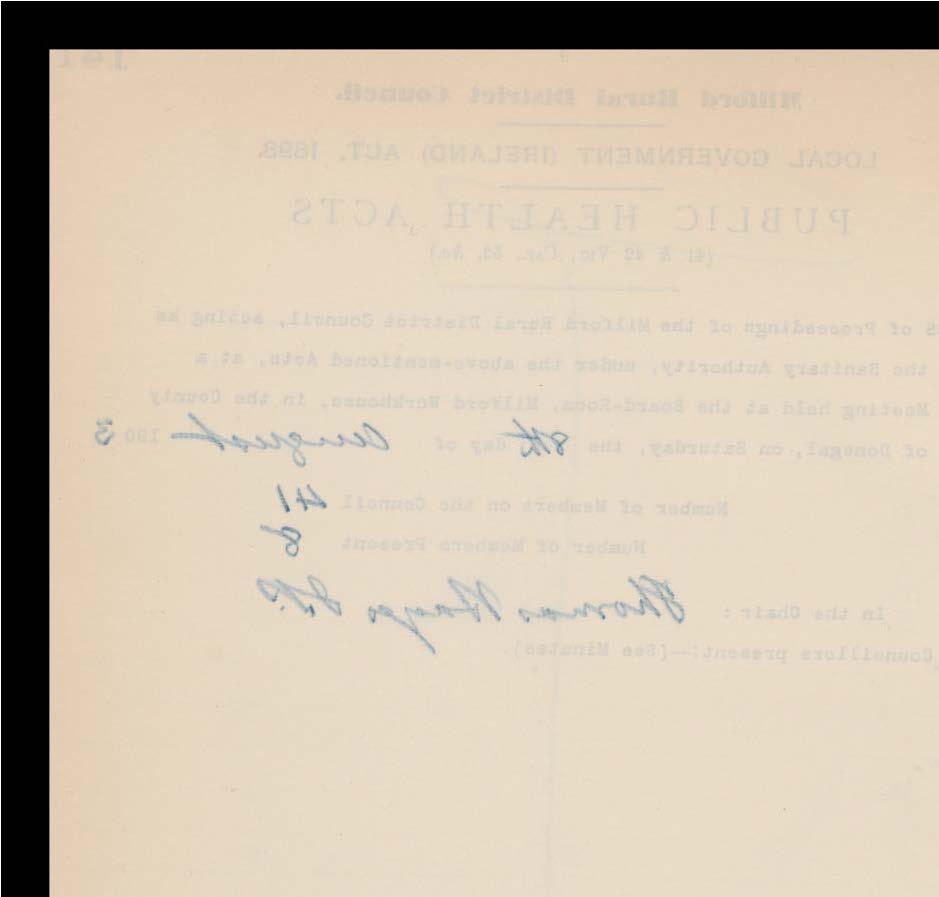 141
Milford Rural District Council.
LOCAL GOVERNMENT (IRELAND) ACT, 1898.
PUBLIC HEALTH ACTS
(41 & 42 Vic., Cap. 52, &c.)
S of Proceedings of the Milford Rural District Council, acting as
the Sanitary Authority, under the above-mentioned Acts, at a
Meeting held at the Board-Room, Milford Workhouse, in the County
of Donegal, on Saturday, the 8th day of August 190 3
Number of Members on the Council 41
Number of Members Present 8
In the Chair : Thomas Hayes J.P.
Councillors present:—(See Minutes).